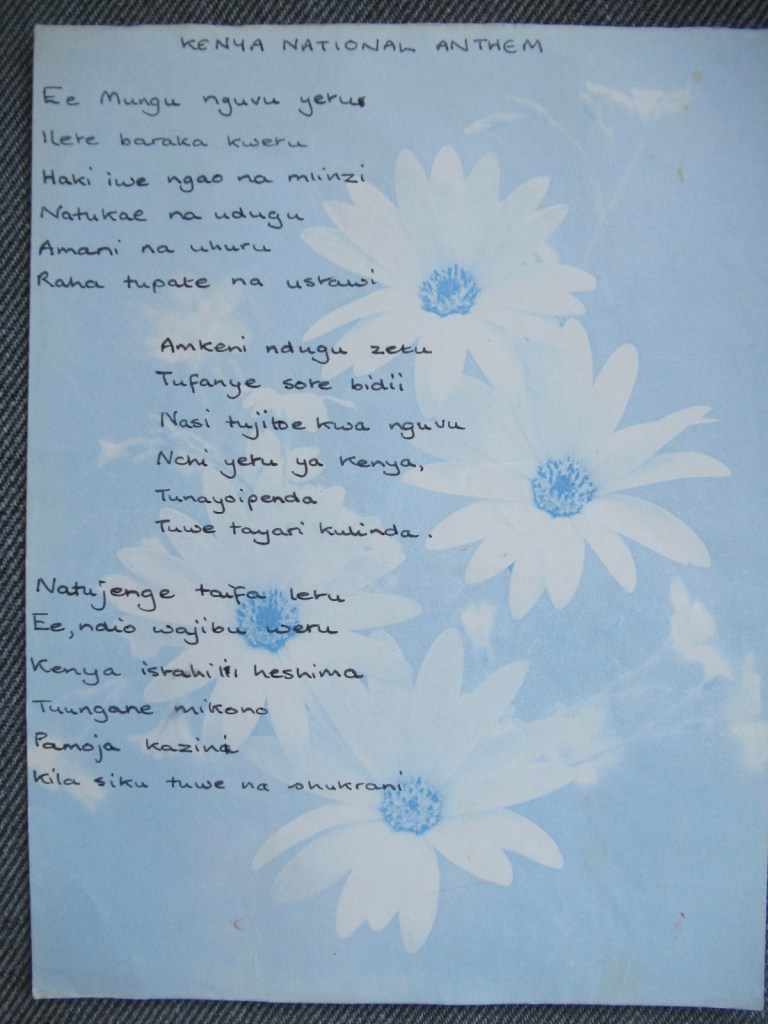 KENYA NATIONAL ANTHEM
Ee Mungu nguvu yetu
Ilete baraka kwetu
Haki iwe ngao na mlinzi
Natukae na udugu
Amani na uhuru
Raha tupate na ustawi
Amkeni ndugu zetu
Tufanye sote bidii
Nasi tujitoe kwa nguvu
Nchi yetu ya Kenya,
Tunayoipenda
Tuwe tayari kulinda.
Natujenge taifa letu
Ee, ndio wajibu wetu
Kenya istahili heshima
Tuungane mikono
Pamoja kazini
Kila siku tuwe na shukrani